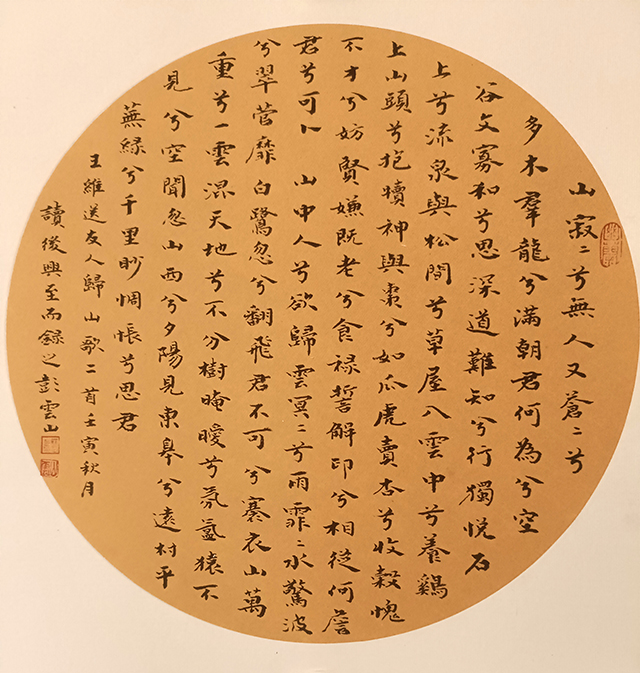 山寂〻兮無人又蒼〻兮
多木羣龍兮滿朝君何為兮空
谷文寡和兮思深道難知兮行獨悅石
上兮流泉與松間兮草屋入雲中兮養鷄
上山頭兮抱犢神與棗兮如瓜虎賣杏兮收穀愧
不才兮妨賢嫌既老兮食祿誓解印兮相從何詹
君兮可卜 山中人兮欲歸雲冥〻兮雨霏〻水驚波
兮翠菅靡白鷺忽兮翻飛君不可兮褰衣山萬
重兮一雲混天地兮不分樹晻曖兮氛氳猿不
見兮空聞忽山西兮夕陽見東皋兮遠村平
蕪綠兮千里眇惆悵兮思君
王維送友人歸山歌二首壬寅秋月
讀後興至而錄之彭雲山